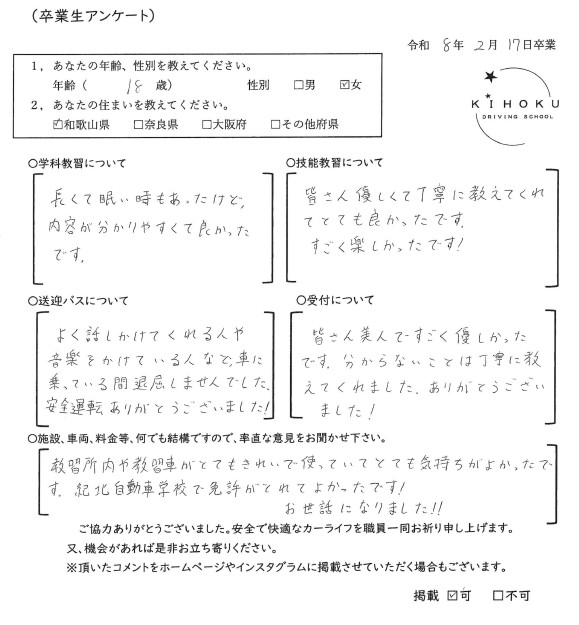 (卒業生アンケート)
令和 8年 2月 17日卒業
1，あなたの年齢、性別を教えてください。
年齢（ 18 歳） 性別 □男 ☑女
2，あなたの住まいを教えてください。
☑和歌山県 □奈良県 □大阪府 □その他府県
KIHOKU
DRIVING SCHOOL
○学科教習について
長くて眠い時もあったけど、
内容が分かりやすくて良かった
です。
○技能教習について
皆さん優しくて丁寧に教えてくれ
てとても良かったです。
すごく楽しかったです!
○送迎バスについて
よく話しかけてくれる人や
音楽をかけている人など、車に
乗っている間退屈しませんでした。
安全運転ありがとうございました!
○受付について
皆さん美人ですごく優しかった
です。分からないことは丁寧に教
えてくれました。ありがとうござい
ました!
○施設、車両、料金等、何でも結構ですので、率直な意見をお聞かせ下さい。
教習所内や教習車がとてもきれいで使っていてとても気持ちがよかったで
す。紀北自動車学校で免許がとれてよかったです!
お世話になりました!!
ご協力ありがとうございました。安全で快適なカーライフを職員一同お祈り申し上げます。
又、機会があれば是非お立ち寄りください。
※頂いたコメントをホームページやインスタグラムに掲載させていただく場合もございます。
掲載 ☑可 □不可